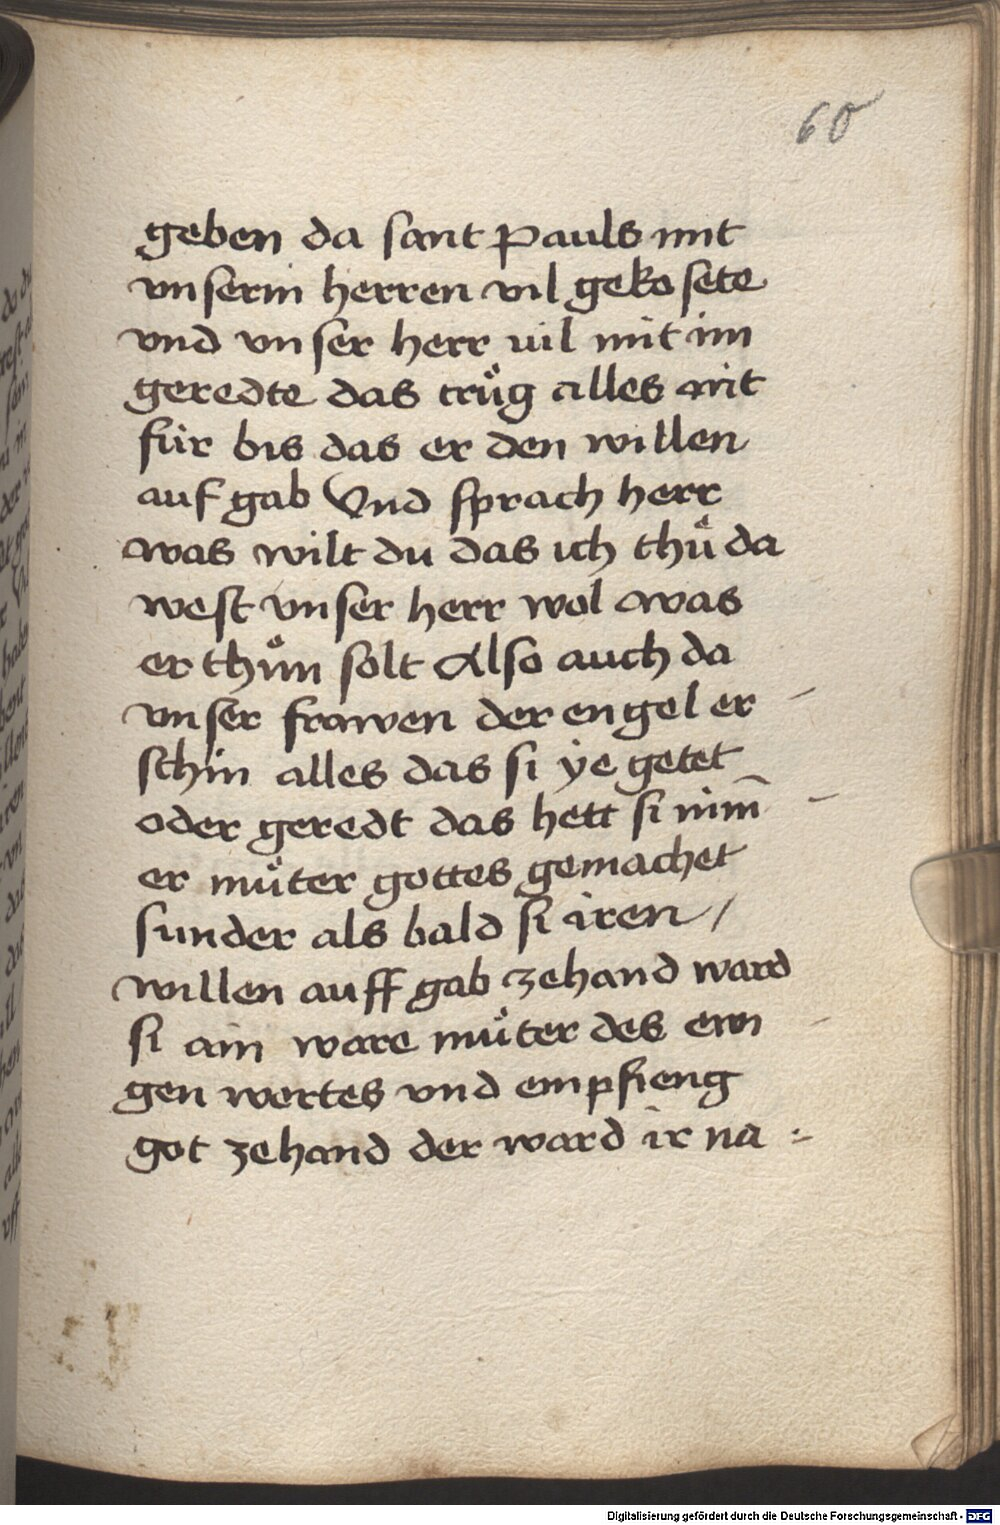 60
geben da sant Pauls mit
vnserm herren vil gekosete
vnd vnser herr uil mit im
geredte das truͦg alles nit
für bis das er den willen
auf gab Vnd sprach herr
was wilt du das ich thuͦ da
west vnser herr wol was
er thuͦn solt Also auch da
vnser frawen der engel er –
schin alles das si ye getet
oder geredt das hett si nim̄ –
er muͦter gottes gemachet
sunder als bald si iren /
willen auff gab zehand ward
si ain ware muͦter des ewi –
gen wortes vnd empfieng
got zehand der ward ir na =
Digitalisierung gefördert durch die Deutsche Forschungsgemeinschaft - DFG